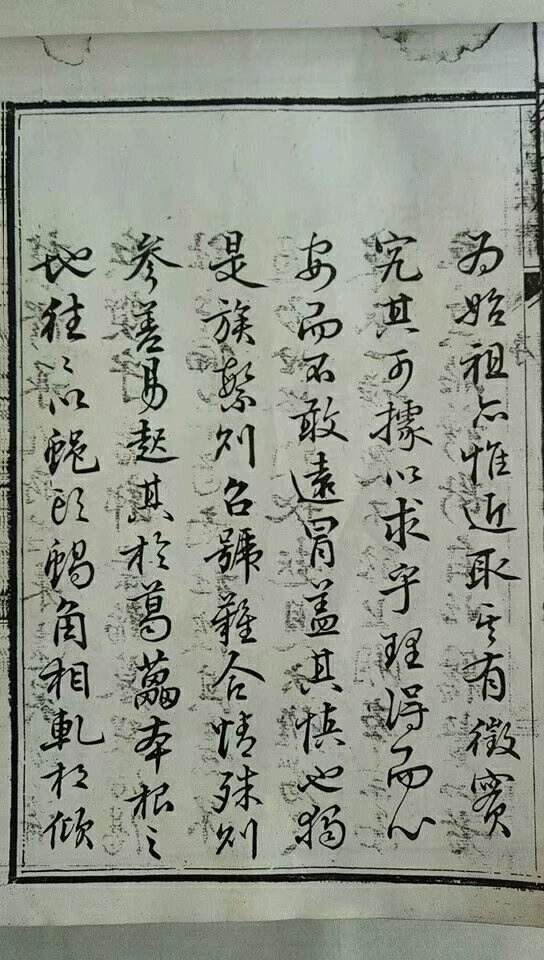 為始祖亦惟近取其有徵實
究其可據以求乎理得而心
安而不敢遠冒蓋其慎也獨
是族繁則名號難合情殊則
參善易起其於葛藟本根之
地往往以蠅頭蝸角相軋相傾